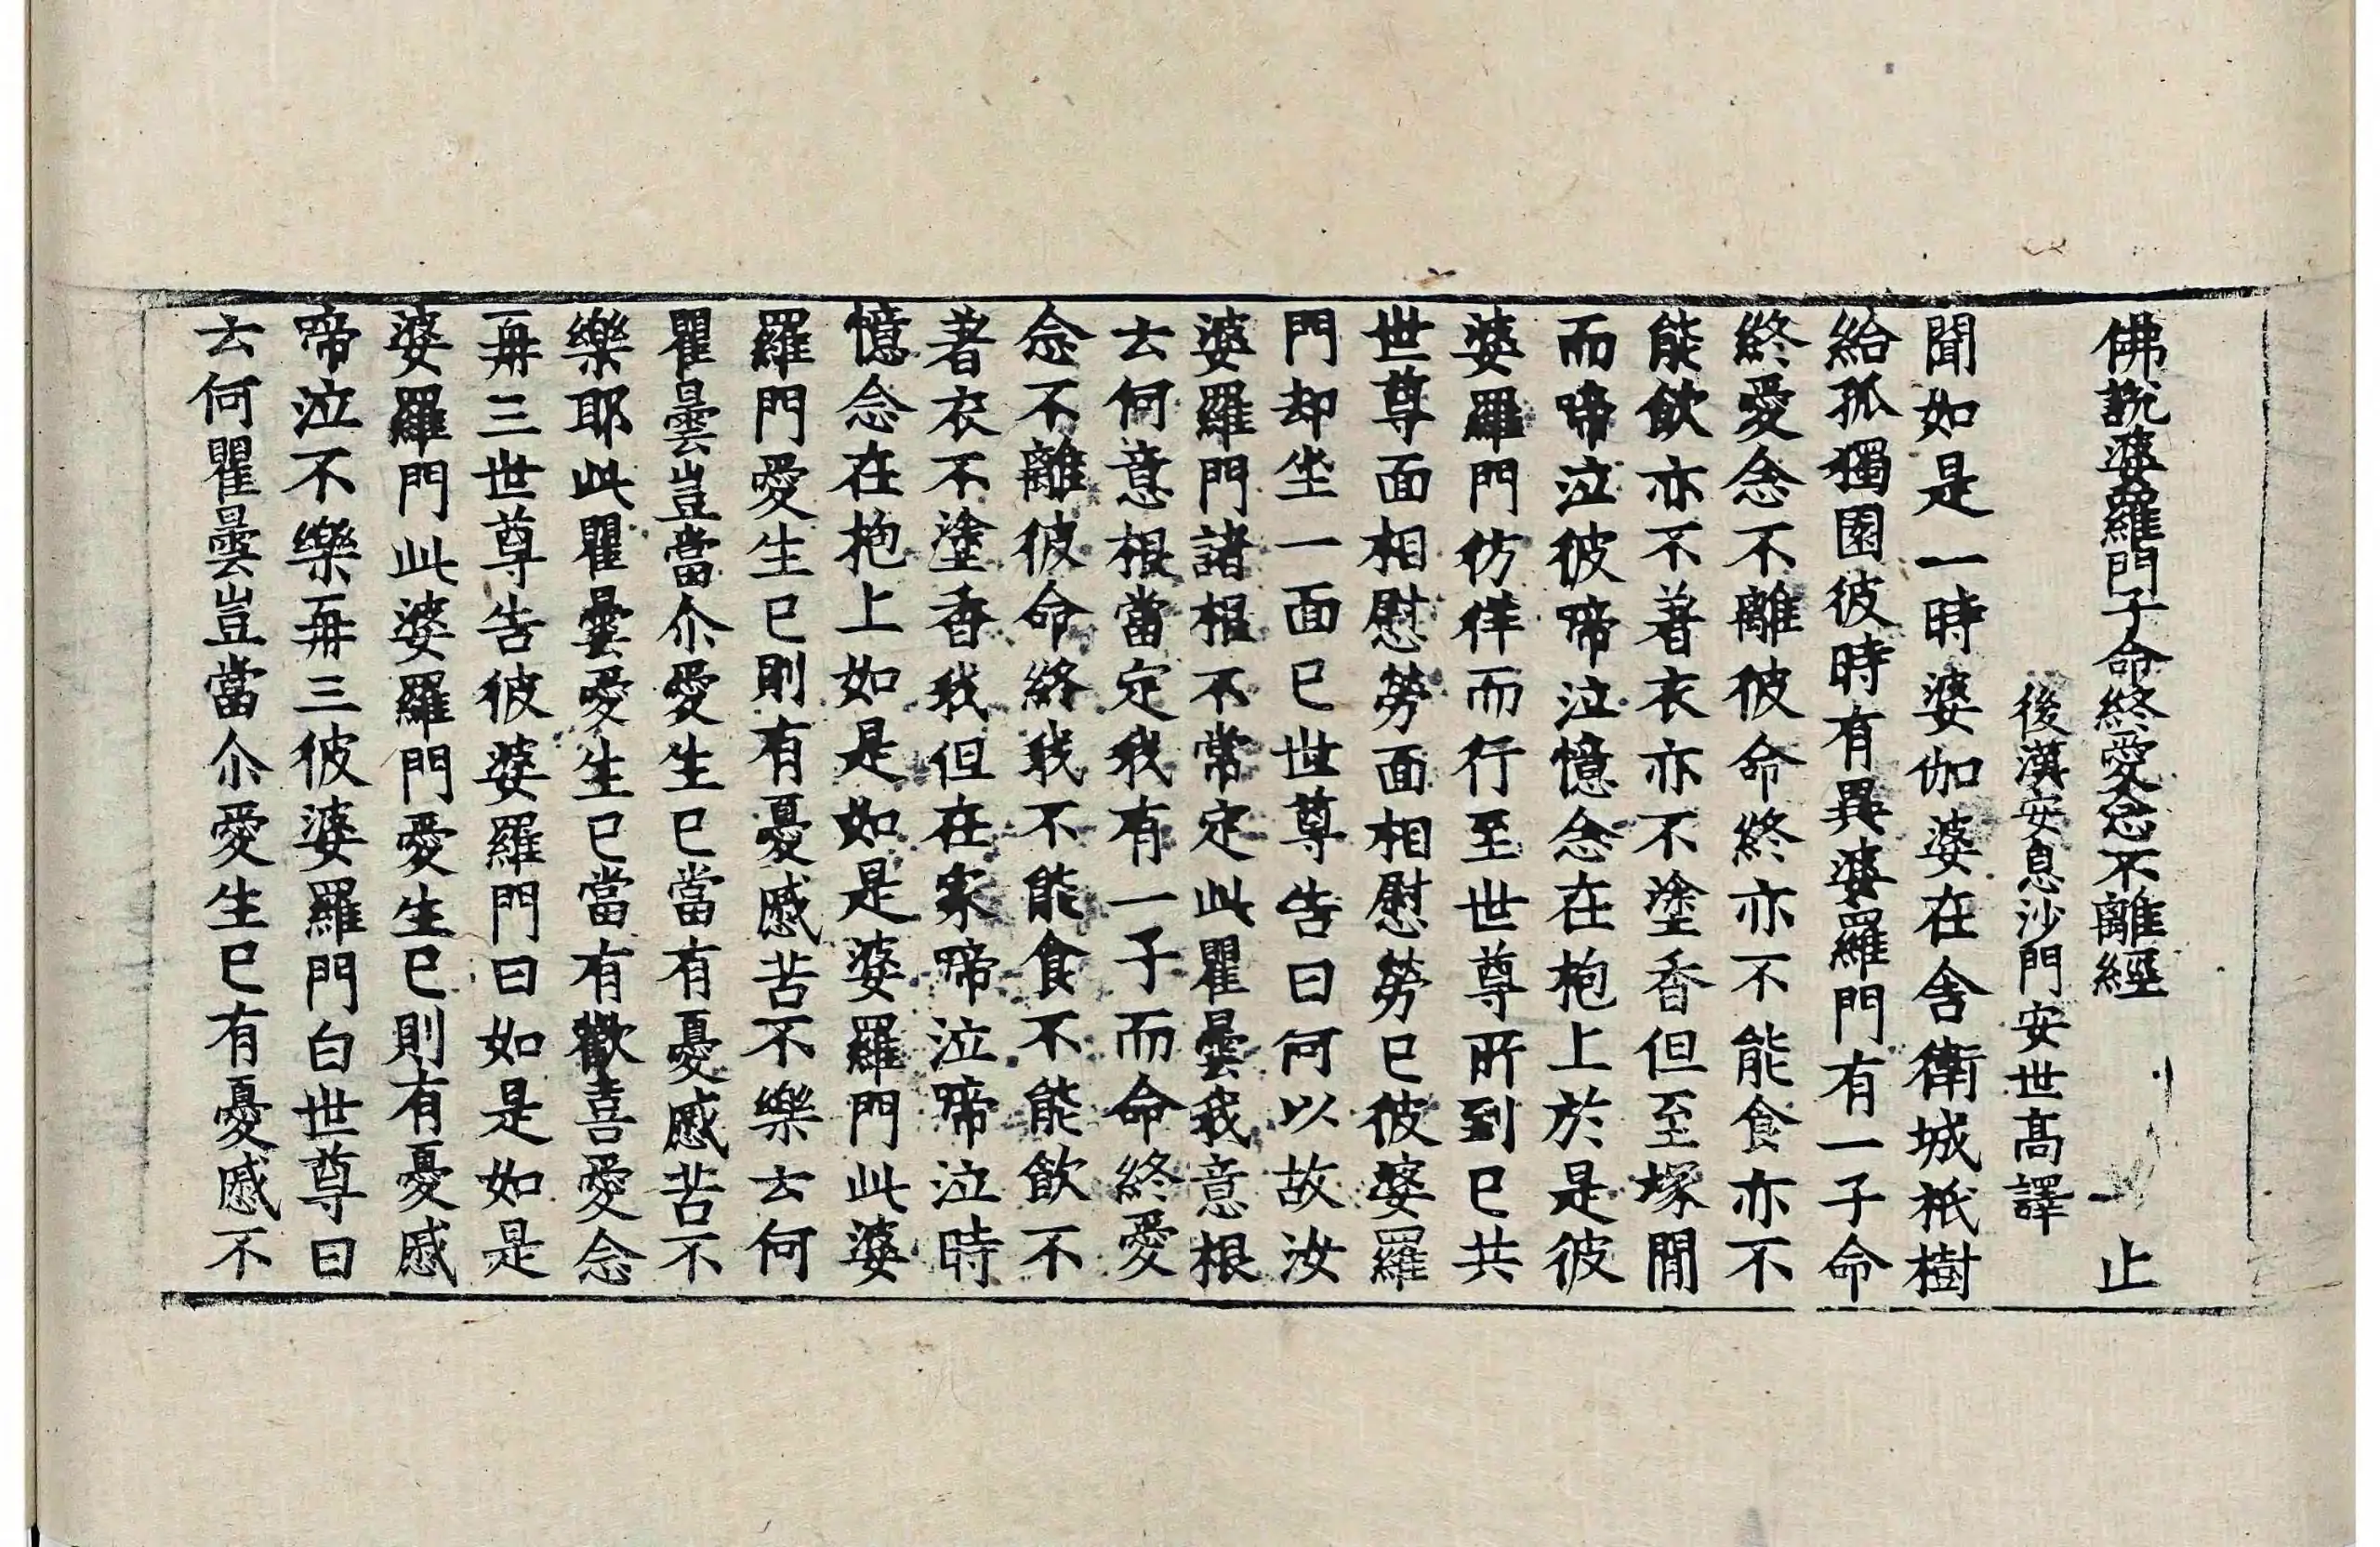 佛說婆羅門子命終愛念不離經 止
後漢安息沙門安世高譯
聞如是一時婆伽婆在舍衛城祇樹
給孤獨園彼時有異婆羅門有一子命
終愛念不離彼命終亦不能食亦不
能飲亦不著衣亦不塗香但至塚間
而啼泣彼啼泣憶念在枹上於是彼
婆羅門彷徉而行至世尊所到已共
世尊面相慰勞面相慰勞已彼婆羅
門却坐一面已世尊告曰何以故汝
婆羅門諸根不常定此瞿曇我意根
去何意根當定我有一子而命終愛
念不離彼命終我不能食不能飲不
著衣不塗香我但在家啼泣啼泣時
憶念在抱上如是如是婆羅門此婆
羅門愛生已則有憂慼苦不樂去何
瞿曇豈當尒愛生已當有憂慼苦不
樂耶此瞿曇愛生已當有歡喜愛念
再三世尊告彼婆羅門曰如是如是
婆羅門此婆羅門愛生已則有憂慼
啼泣不樂再三彼婆羅門白世尊曰
去何瞿曇豈當尒愛生已有憂慼不